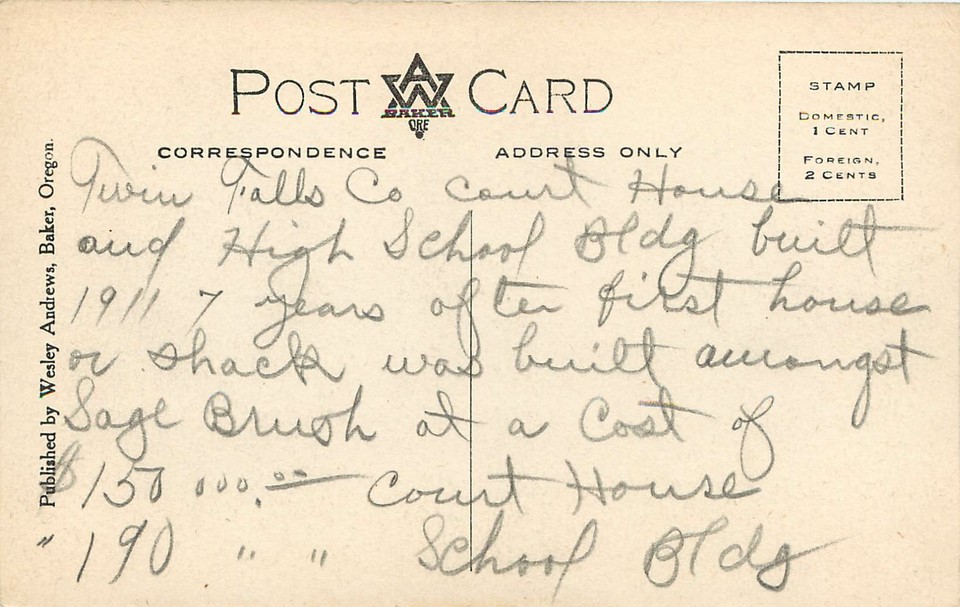 POST CARD
AW
BAKER
ORE
CORRESPONDENCE
ADDRESS ONLY
STAMP
DOMESTIC,
1 CENT
FOREIGN,
2 CENTS
Published by Wesley Andrews, Baker, Oregon.
Twin Falls Co court House
and High School Bldg built
1911 7 years after first house
or shack was built amongst
Sage Brush at a Cost of
$150 000.00 Court House
" 190 " " School Bldg